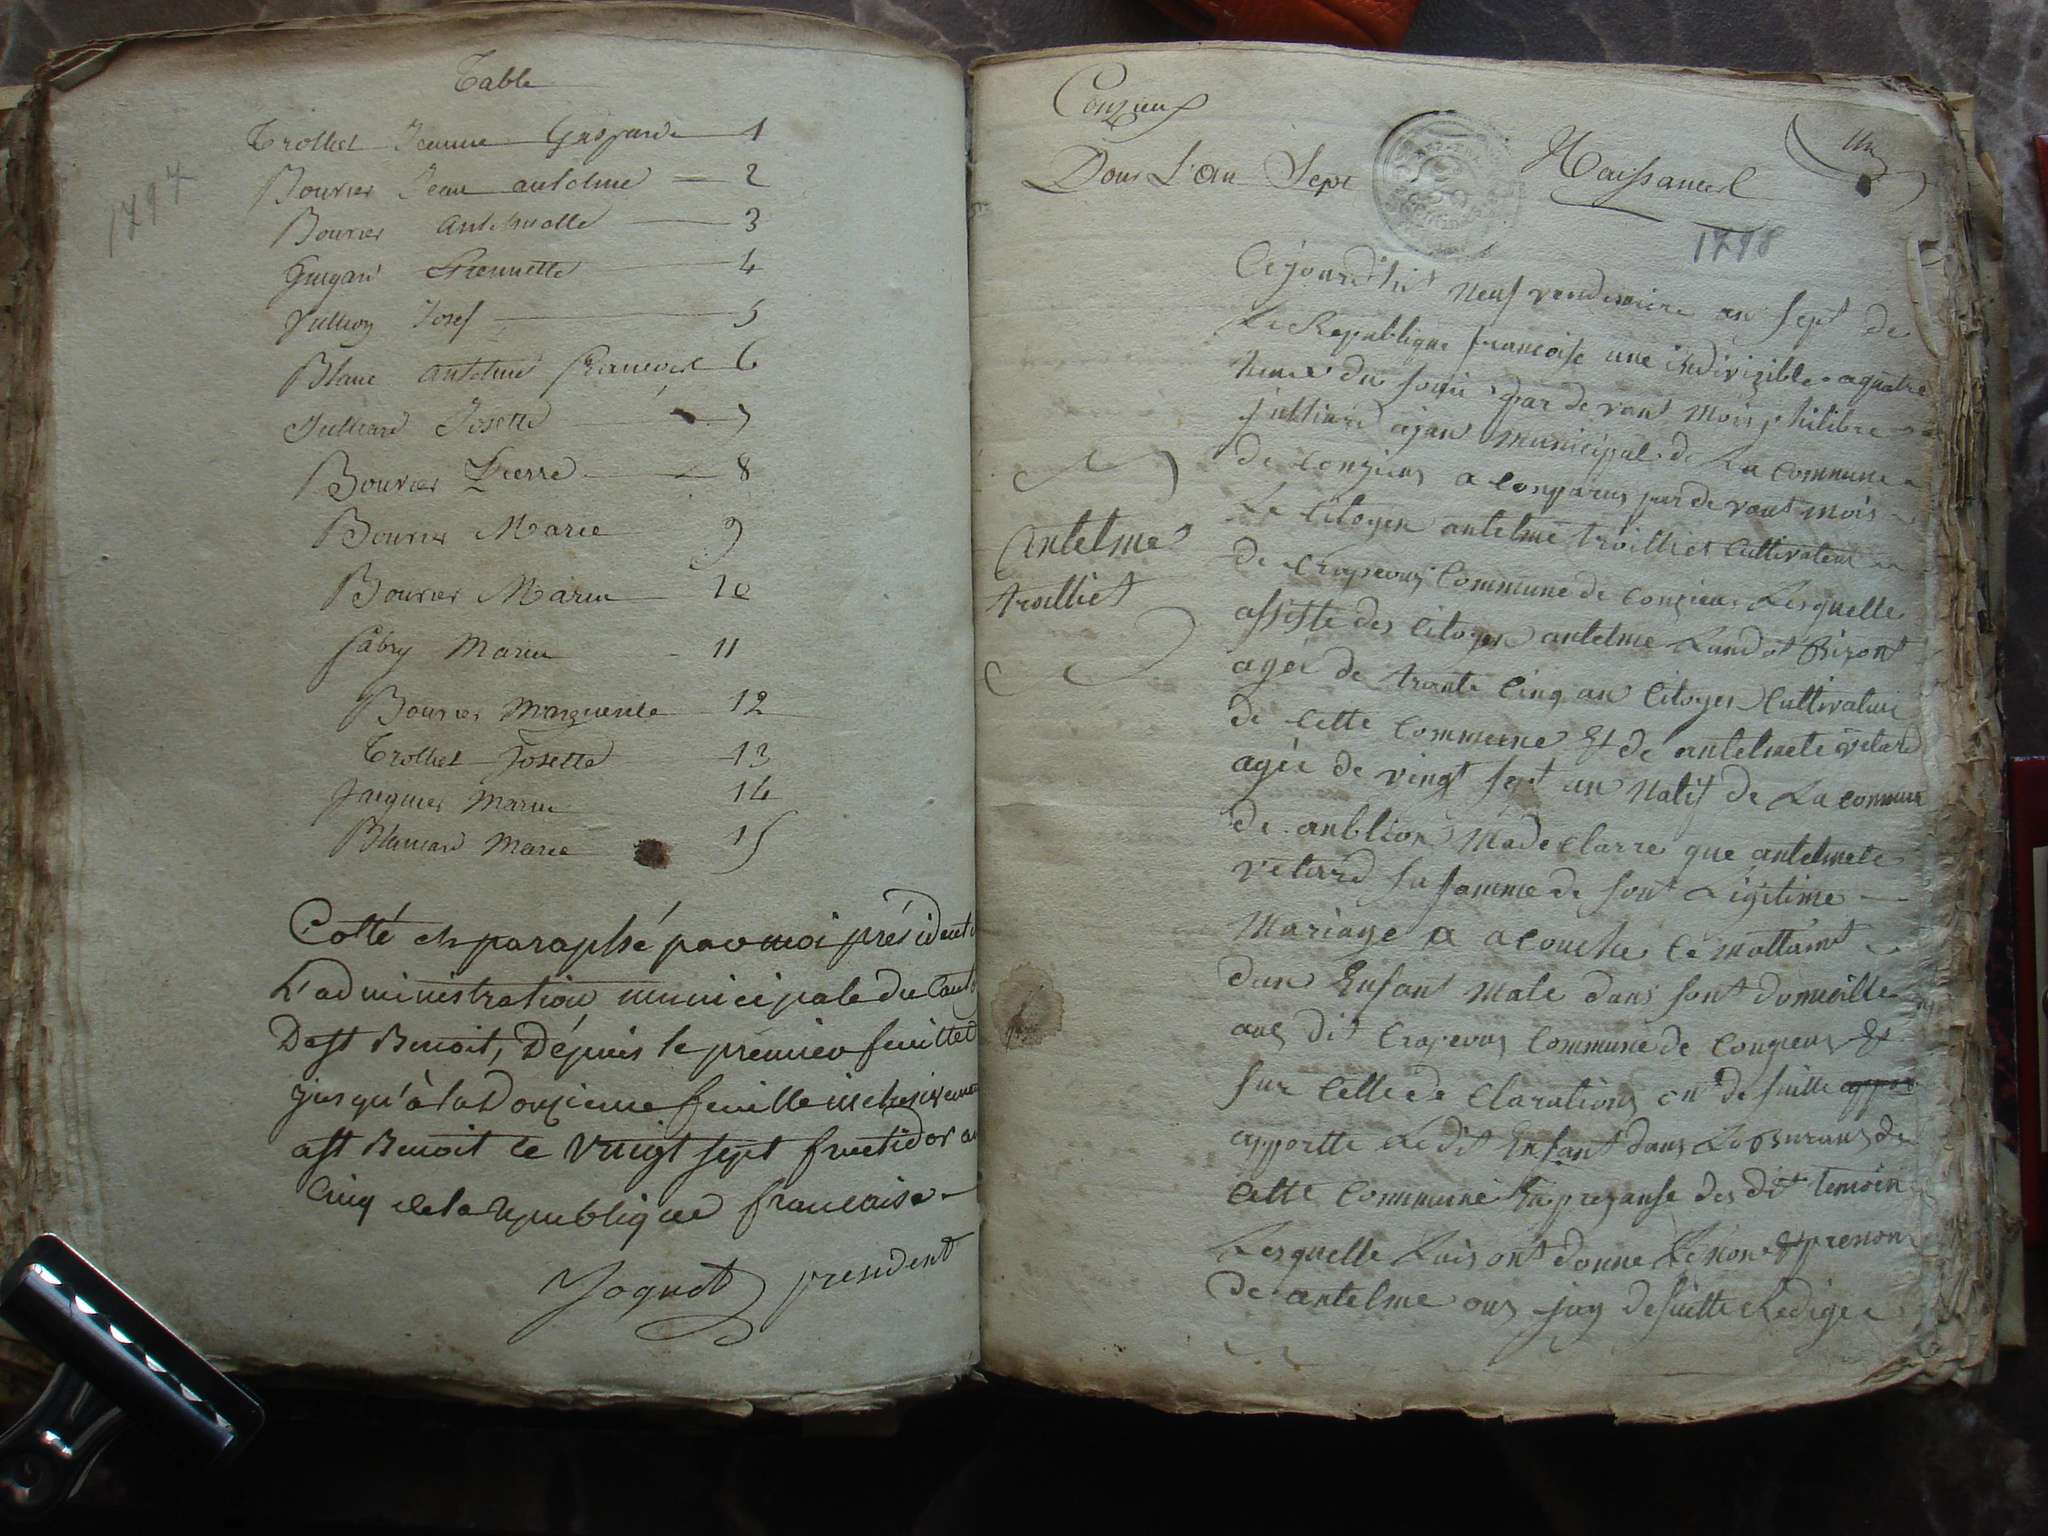 Table
Trolliet Jeanne Gasparde 1
Bouvier Jean antelme 2
Bouvier Antelmette 3
Guigard Pierrette 4
Jullion Josef 5
Blanc antelme francois 6
Julliard Josette 7
Bouvier Pierre 8
Bouvier Marie 9
Bouvier Marie 10
fabry Marie 11
Bouvier Marguerite 12
Trolliet Josette 13
Jacquier Marie 14
Blancard Marie 15
1797
Cotté et paraphé par moi président
L'administration municipale du Cant
De st Benoit, Dépuis le premier feuillet
jusqu'à la Douzieme feuille inclusivement
a st Benoit ce vingt sept fructidor an
Cinq de la republique francaise
Joquet president
Conzieux
Pour L'an Sept
Naissances
Un
1798
Cejourdhuit neuf vendemiere an sept de
La Republique francoise une indivizible a quatre
heure du soire par devant mois philibre
julliard ajant municipal de La commune
de conzieux a comparus par devant mois
Le Citoyen antelme troilliet Cultivateur
de Crapeous Commune de conzieu Lesquelle
assiste des Citoyen antelme Landot Biront
agée de trante Cinq an Citoyen Cultivateur
de Cette Commune Et de antelmete vetard
agée de vingt sept an natif de La commune
de anblion Ma de clarre que antelmete
vetard sa famme de sont Ligitime
Mariage a acouche le mattaint
dun Enfant male dans sont domicille
aus dit Crapeous Commune de conzieux Et
sur Cette de Claration ont de suitte appor
apportte Le dit Enfant dans Le Bureaux de
Cette Commune En prezanse des dit temoin
Lesquelle Luis ont donne Le non Et prenon
de antelme ous jay de suitte Redige
antelme
troilliet